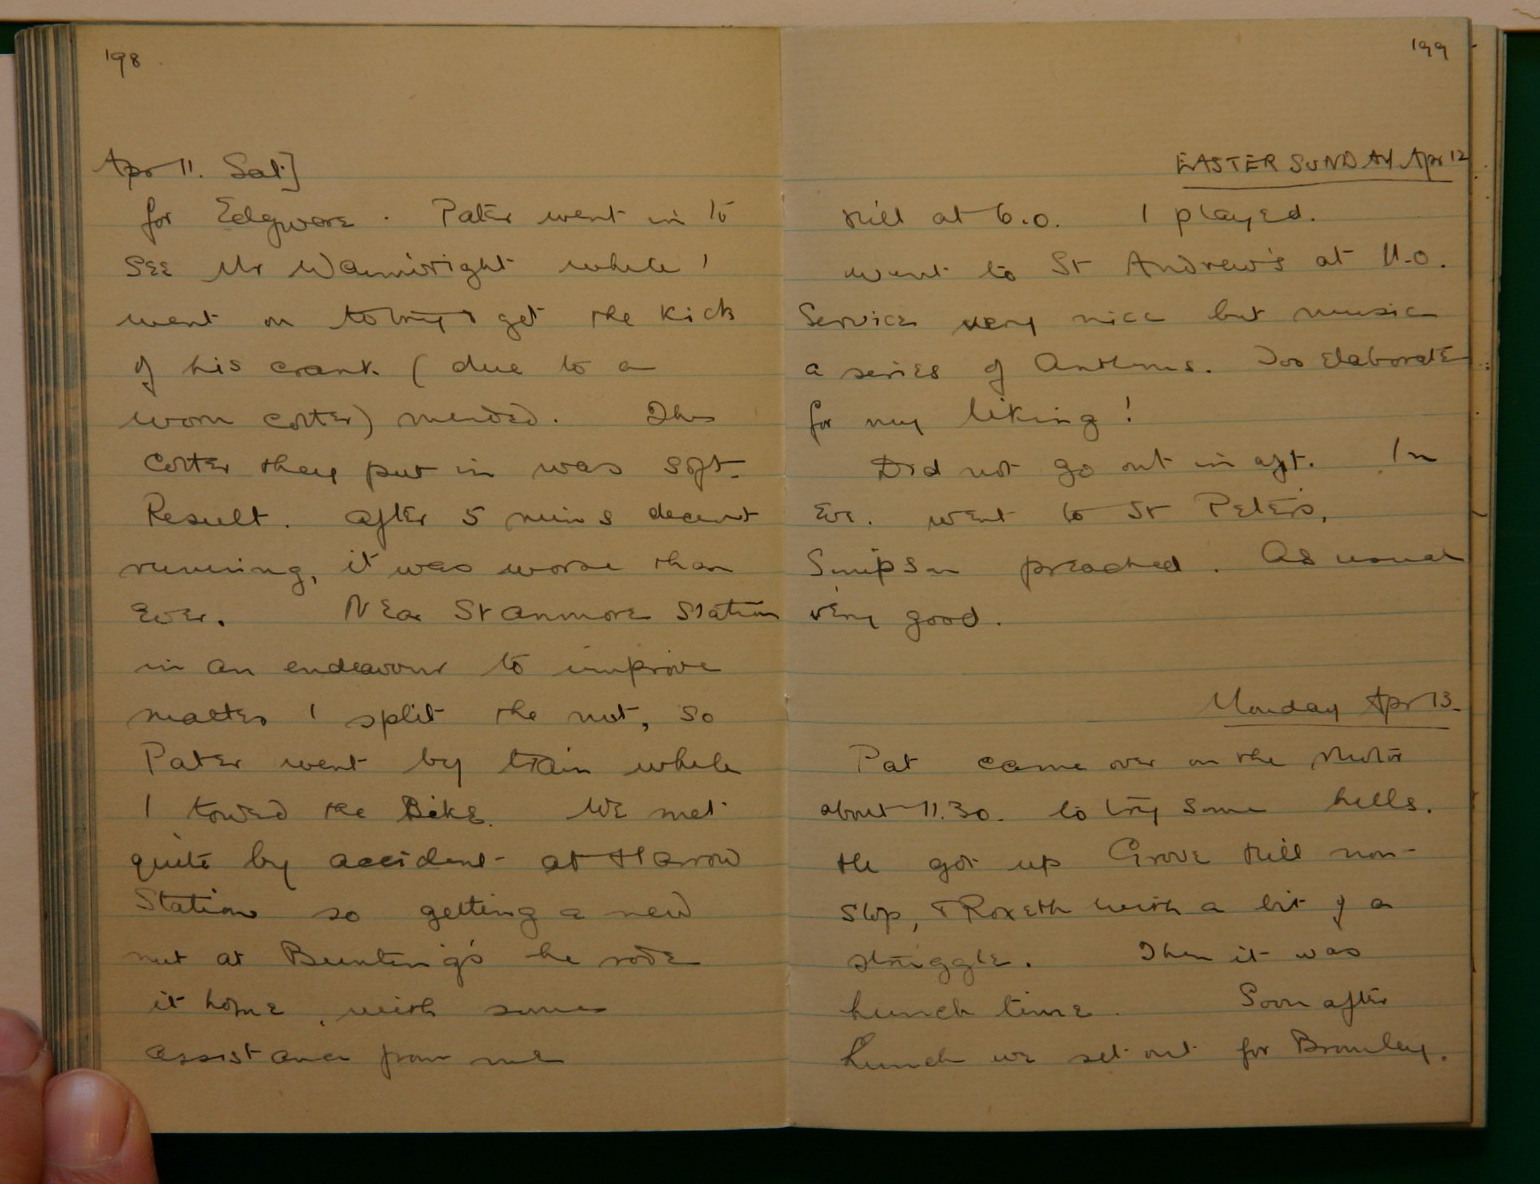 198
Apr 11. Sat]
for Edgware. Pater went in to
see Mr Wainwright while I
went on to try & get the kick
of his crank (due to a
worn cotter) mended. The
cotter they put in was soft.
Result. after 5 mins decent
running, it was worse than
ever. Near Stanmore Station
in an endeavour to improve
matters I split the nut, so
Pater went by train while
I towed the Bike. We met
quite by accident at Harrow
Station so getting a new
nut at Bunting's he rode
it home, with some
assistance from me
199
EASTER SUNDAY Apr 12
Hill at 6.0. I played.
went to St Andrew's at 11.0.
Service very nice but music
a series of Anthems. Too elaborate
for my liking!
Did not go out in aft. In
Eve. went to St Peters,
Simpson preached. As usual
very good.
Monday Apr 13.
Pat came over on the Motor
about 11.30. to try some hills.
He got up Grove Hill non-
stop, & Roxeth with a bit of a
struggle. Then it was
lunch time. Soon after
lunch we set out for Bromley.